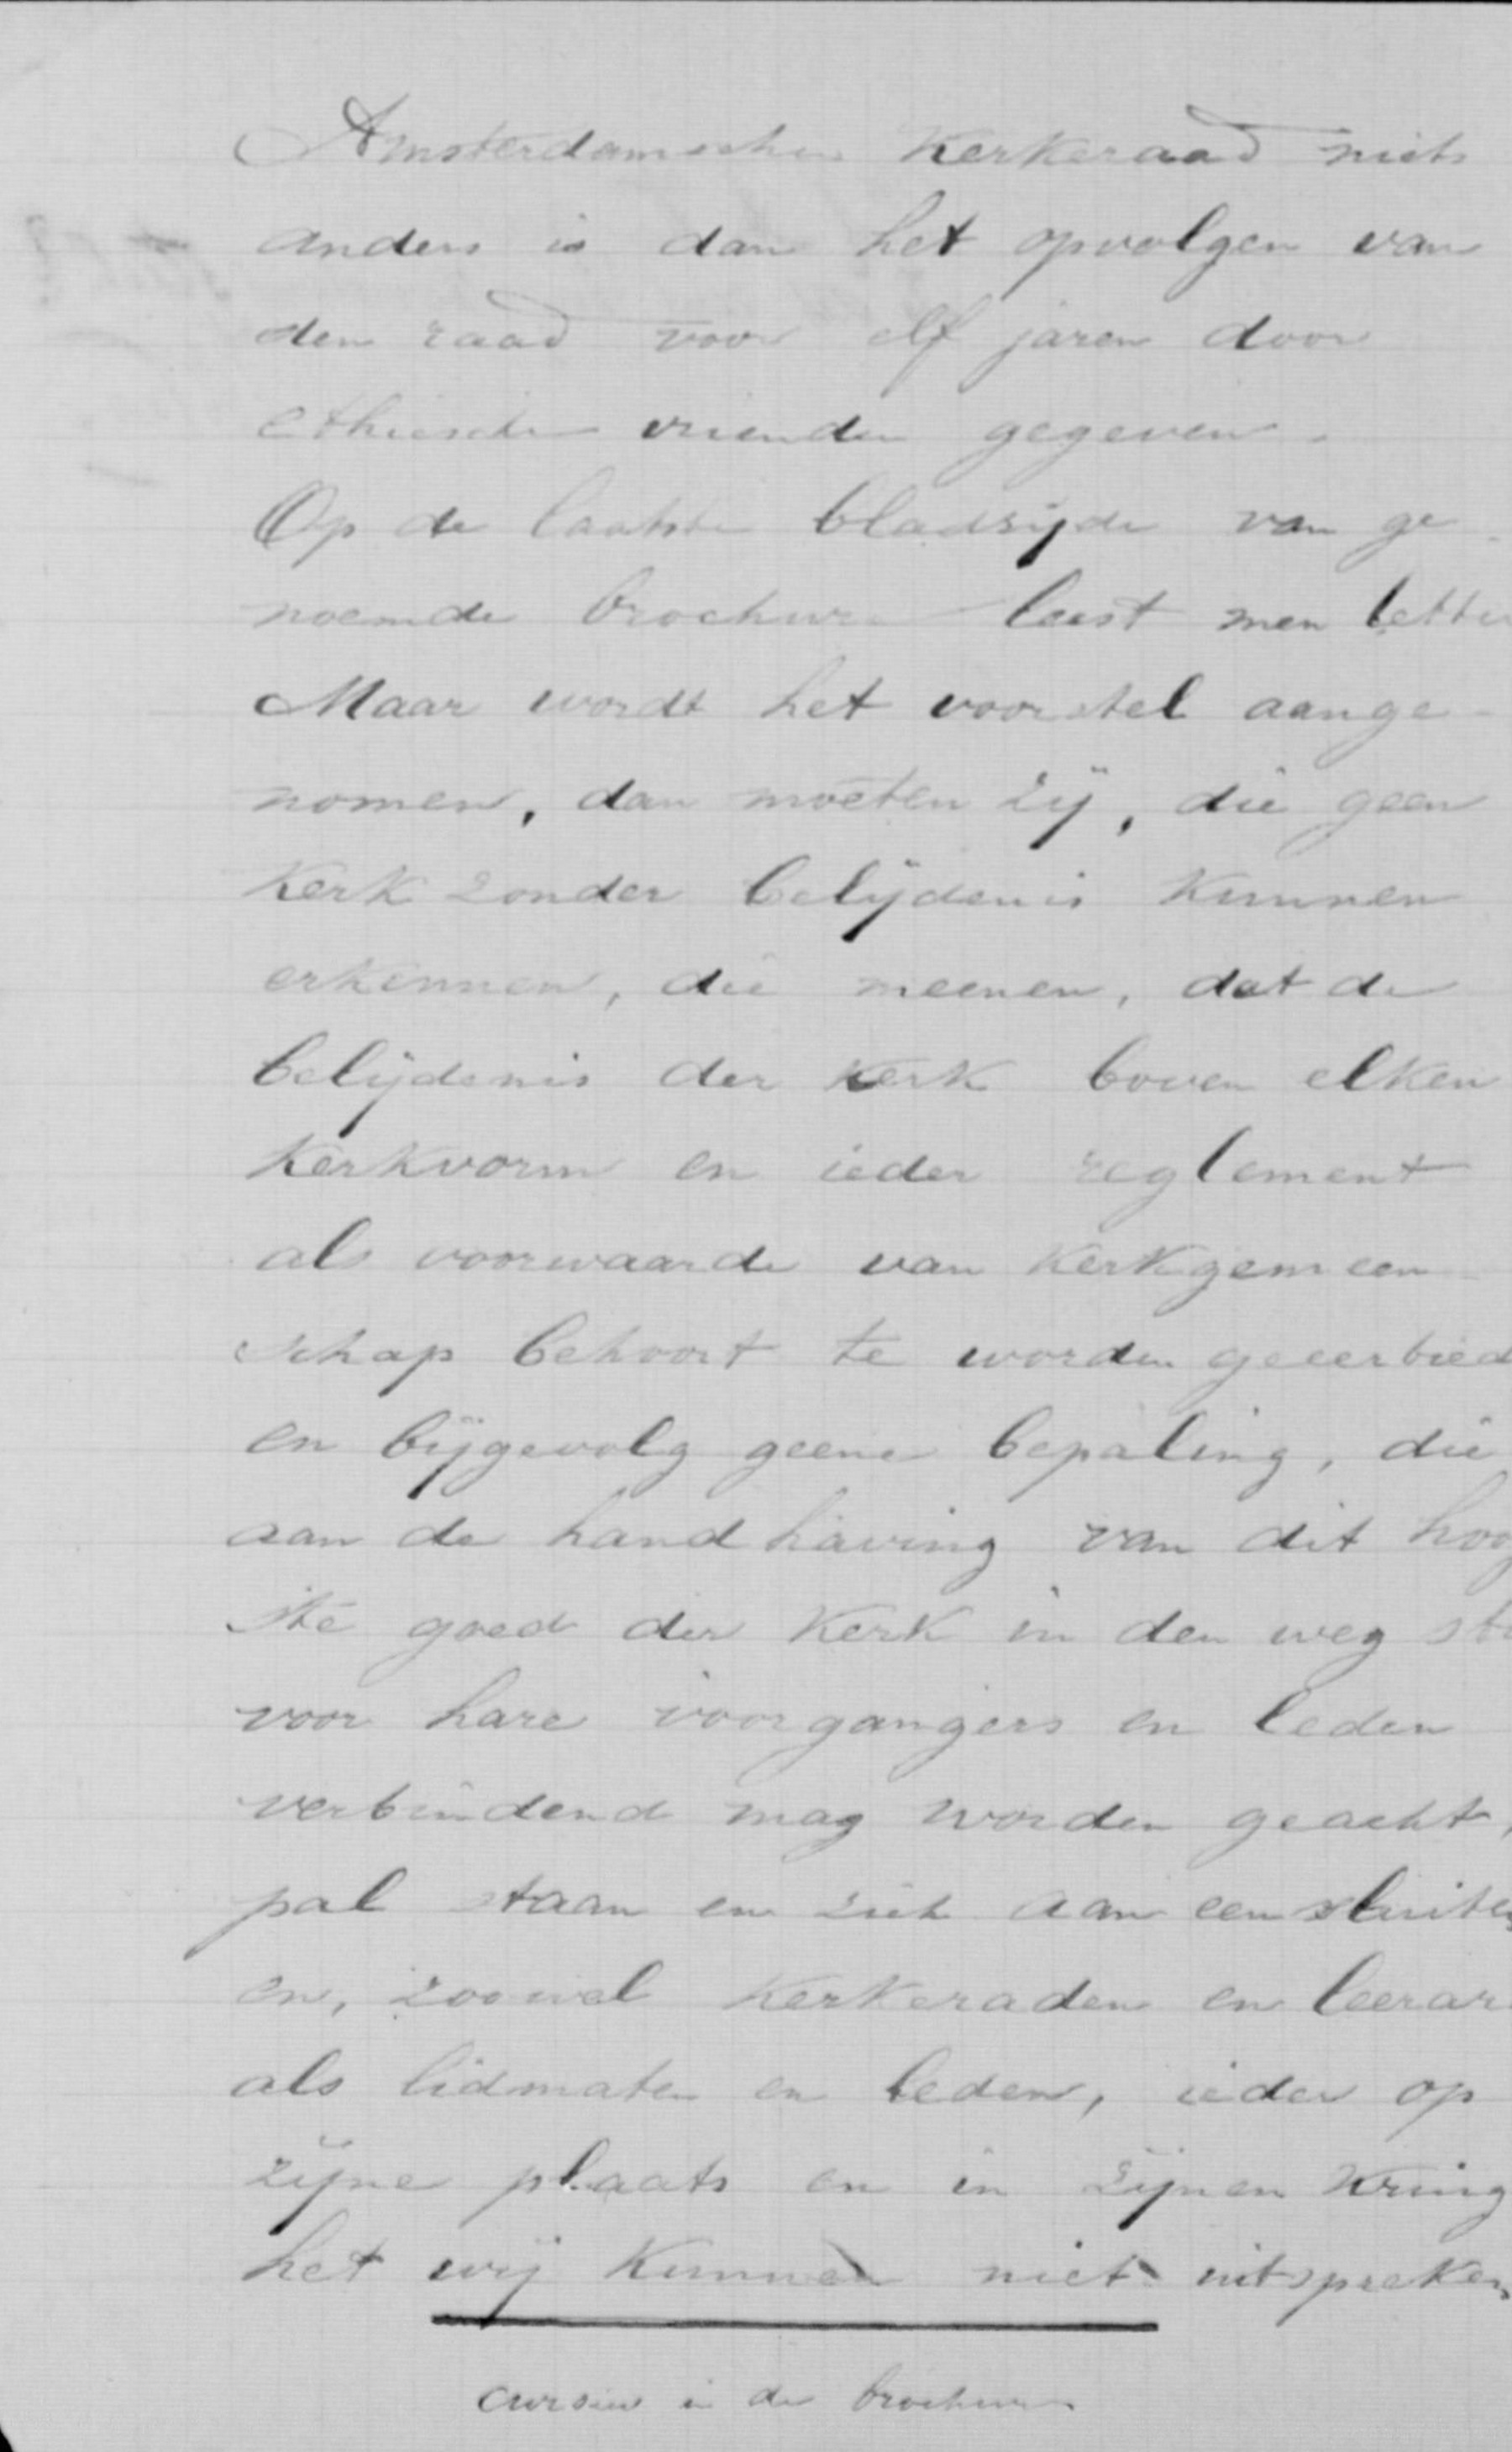 Amsterdamschen Kerkeraad niets
anders is dan het opvolgen van
den raad voor elf jaren door
ethische vrienden gegeven.
Op de laatste bladzijde van ge-
noemde brochure leest men
Maar wordt het voorstel aange-
nomen, dan moeten zij, die geen
Kerk zonder belijdenis kunnen
erkennen, die meenen, dat de
belijdenis der Kerk boven elken
Kerkvorm en ieder reglement
als voorwaarde van Kerkgemeen-
schap behoort te worden geeerbied
en bijgevolg geene bepaling, die
aan de handhaving van dit hoog
ste goed der Kerk in den weg
voor hare voorgangers en leden
verbindend mag worden geacht,
pal staan en zich aaneensluiten
en, zoowel Kerkeraden en leerar
als lidmaten en leden, ieder op
zijne plaats en in zijnen Kring
het wij Kunnen niet uitspreken
cursief in de brochure